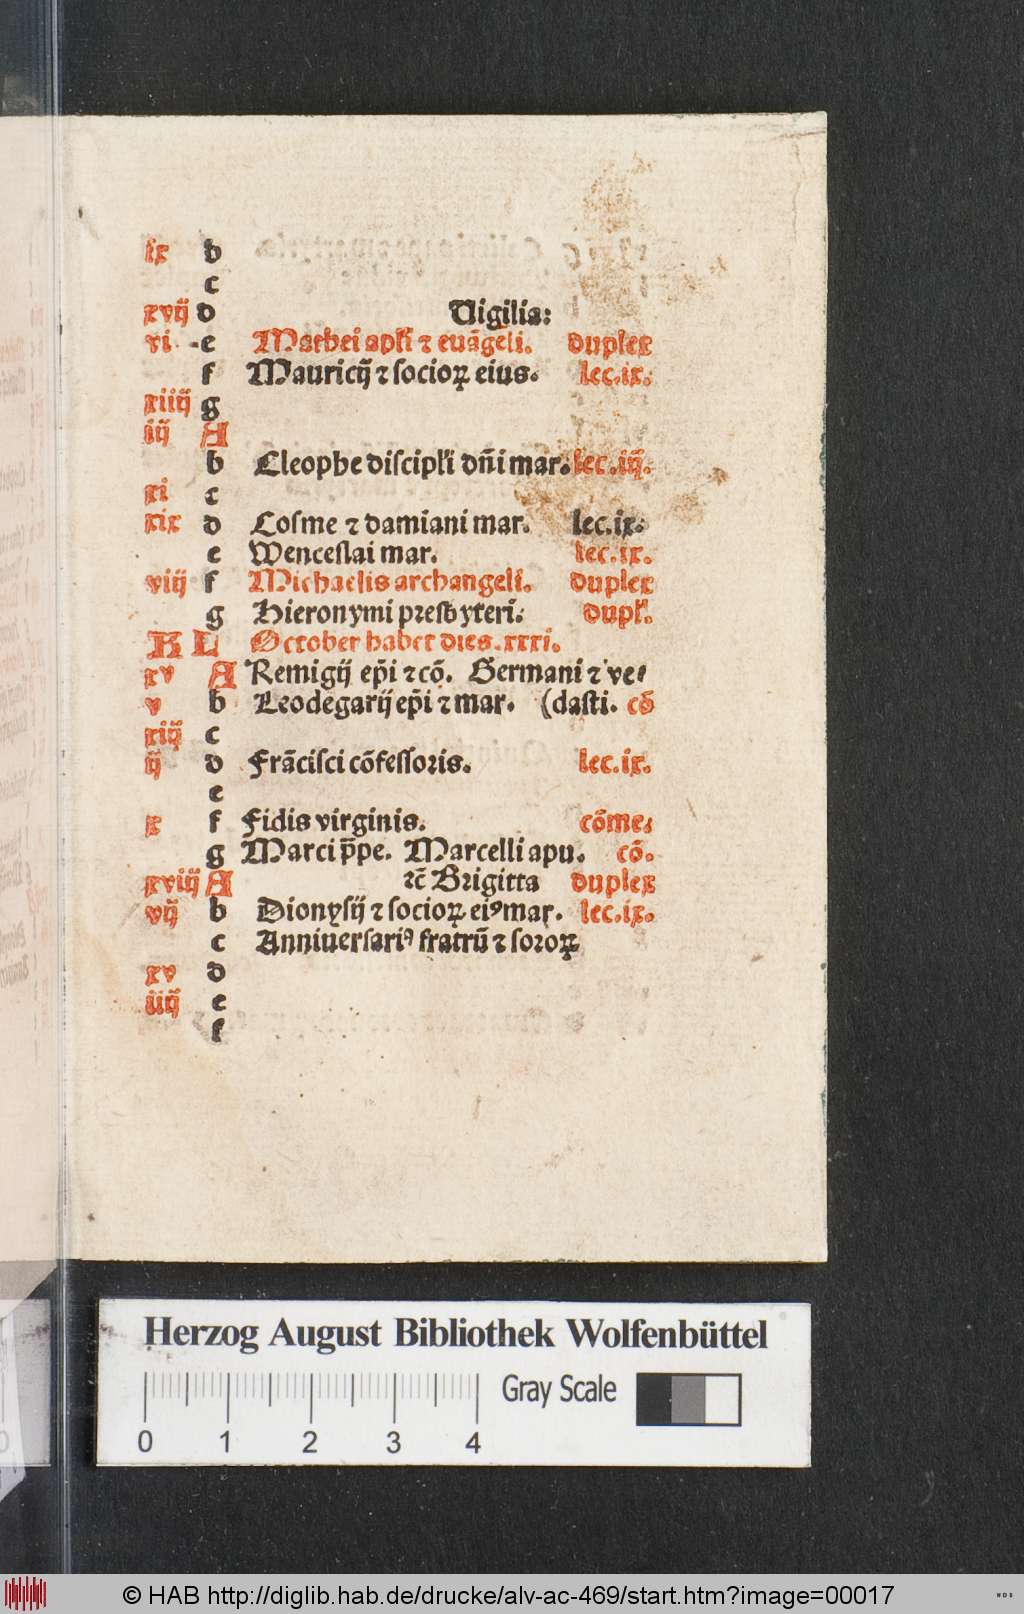 ix b
c
xvij d Uigilia:
vi e Mathei apłi ⁊ euāgeli. duplex
f Mauricij ⁊ socioꝝ eius. lec.ix.
xiiij g
iij A
b Cleophe discipłi dn̄i mar. lec.iij.
xi c
xix d Cosme ⁊ damiani mar. lec.ix.
e Wenceslai mar. lec.ix.
viij f Michaelis archangeli. duplex
g Hieronymi presbyteri. dupł.
K L October habet dies.xxxi.
xv A Remigij ep̄i ⁊ cō. Germani ⁊ ve⸗
v b Leodegarij ep̄i ⁊ mar. (dasti. cō
xiij c
ij d Frācisci cōfessoris. lec.ix.
e
x f Fidis virginis. cōme.
g Marci p̄pe. Marcelli apu. cō.
xviij A ⁊c̄ Brigitta duplex
vij b Dionysij ⁊ socioꝝ eiꝰ mar. lec.ix.
c Anniuersariꝰ fratrū ⁊ soroꝝ
xv d
iiij e
f
Herzog August Bibliothek Wolfenbüttel
Gray Scale
0 1 2 3 4
© HAB http://diglib.hab.de/drucke/alv-ac-469/start.htm?image=00017